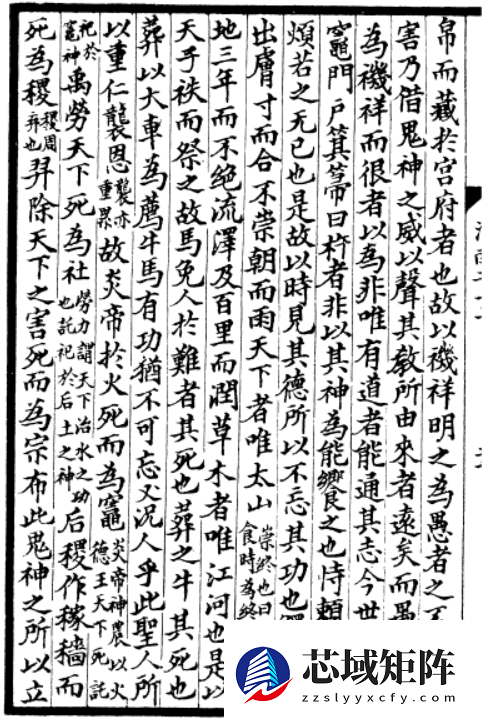 帛而藏於宫府者也故以禨祥明之為愚者之不
害乃借鬼神之威以聲其敎所由來者遠矣而愚
為禨祥而很者以為非唯有道者能通其志今世
竈門户箕箒曰杵者非以其神為能饗之也恃賴
煩若之无已也是故以時見其德所以不忘其功也
出膚寸而合不崇朝而雨天下者唯太山崇終也曰食時為終
地三年而不絶流澤及百里而潤草木者唯江河也是以
天子祑而祭之故馬免人於難者其死也葬之牛其死也
葬以大車為薦牛馬有功猶不可忘又況人乎此聖人所
以重仁襲恩襲亦重累故炎帝於火死而為竈炎帝神農以火德王天下死託
祀於竈神禹勞天下死為社勞力謂天下治水之功也託祀於后土之神后稷作稼穡而
死為稷稷周弃也羿除天下之害死而為宗布此鬼神之所以立
芯域矩阵
zzslyyxcfy.com